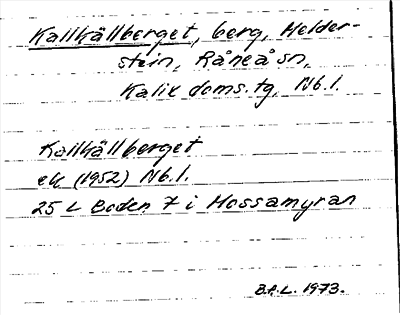 Kallkällberget, berg, Melder-
stein, Råneå sn,
Kalix doms.tg, Nb.l.
Kallkällberget
ek (1952) Nb.l.
25 L Boden 7 i Mossamyran
B.A.L. 1973.